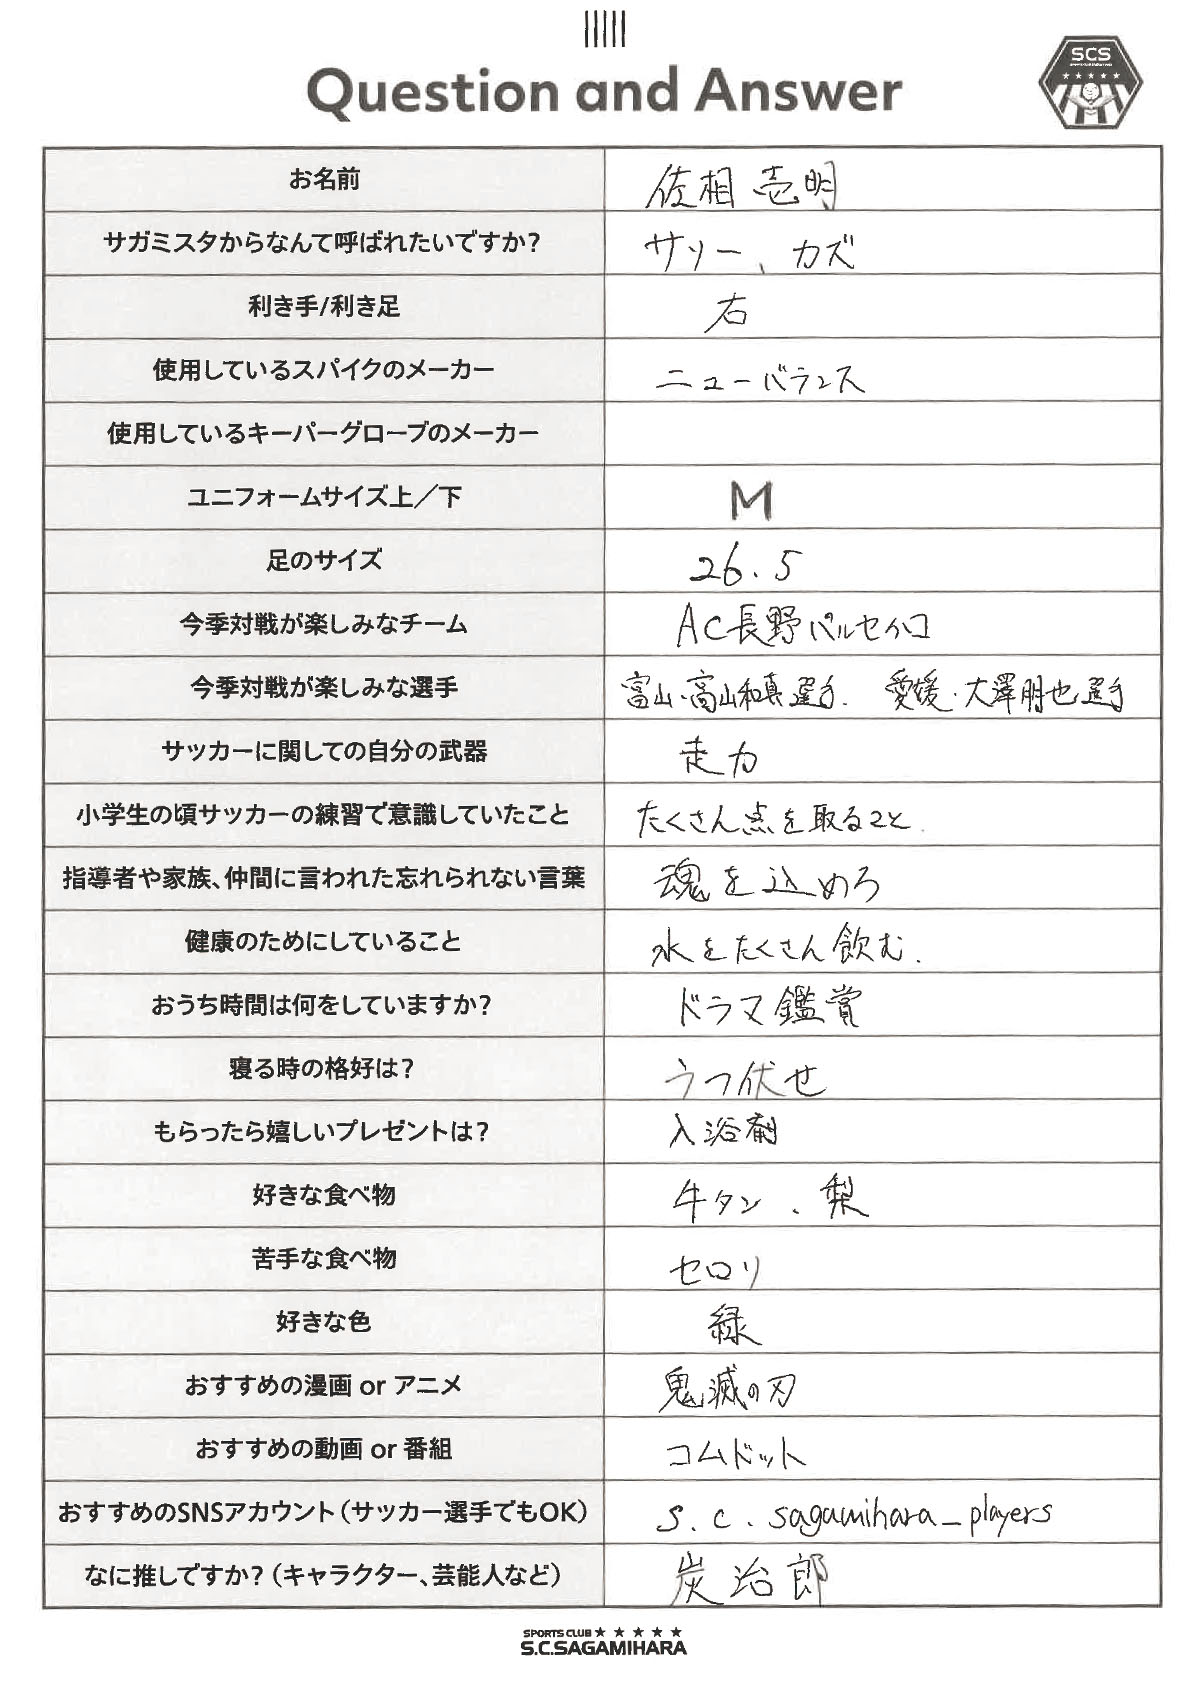 Question and Answer
SCS
お名前 佐相壱明
サガミスタからなんて呼ばれたいですか? サソー、カズ
利き手/利き足 右
使用しているスパイクのメーカー ニューバランス
使用しているキーパーグローブのメーカー
ユニフォームサイズ上／下 M
足のサイズ 26.5
今季対戦が楽しみなチーム AC長野パルセイロ
今季対戦が楽しみな選手 富山・高山和真選手. 愛媛・大澤朋也選手
サッカーに関しての自分の武器 走力
小学生の頃サッカーの練習で意識していたこと たくさん点を取ること.
指導者や家族、仲間に言われた忘れられない言葉 魂を込めろ
健康のためにしていること 水をたくさん飲む.
おうち時間は何をしていますか? ドラマ鑑賞
寝る時の格好は? うつ伏せ
もらったら嬉しいプレゼントは? 入浴剤
好きな食べ物 牛タン、梨
苦手な食べ物 セロリ
好きな色 緑
おすすめの漫画 or アニメ 鬼滅の刃
おすすめの動画 or 番組 コムドット
おすすめのSNSアカウント（サッカー選手でもOK） s.c.sagamihara_players
なに推しですか?（キャラクター、芸能人など） 炭治郎
SPORTS CLUB ★ ★ ★ ★ ★
S.C.SAGAMIHARA